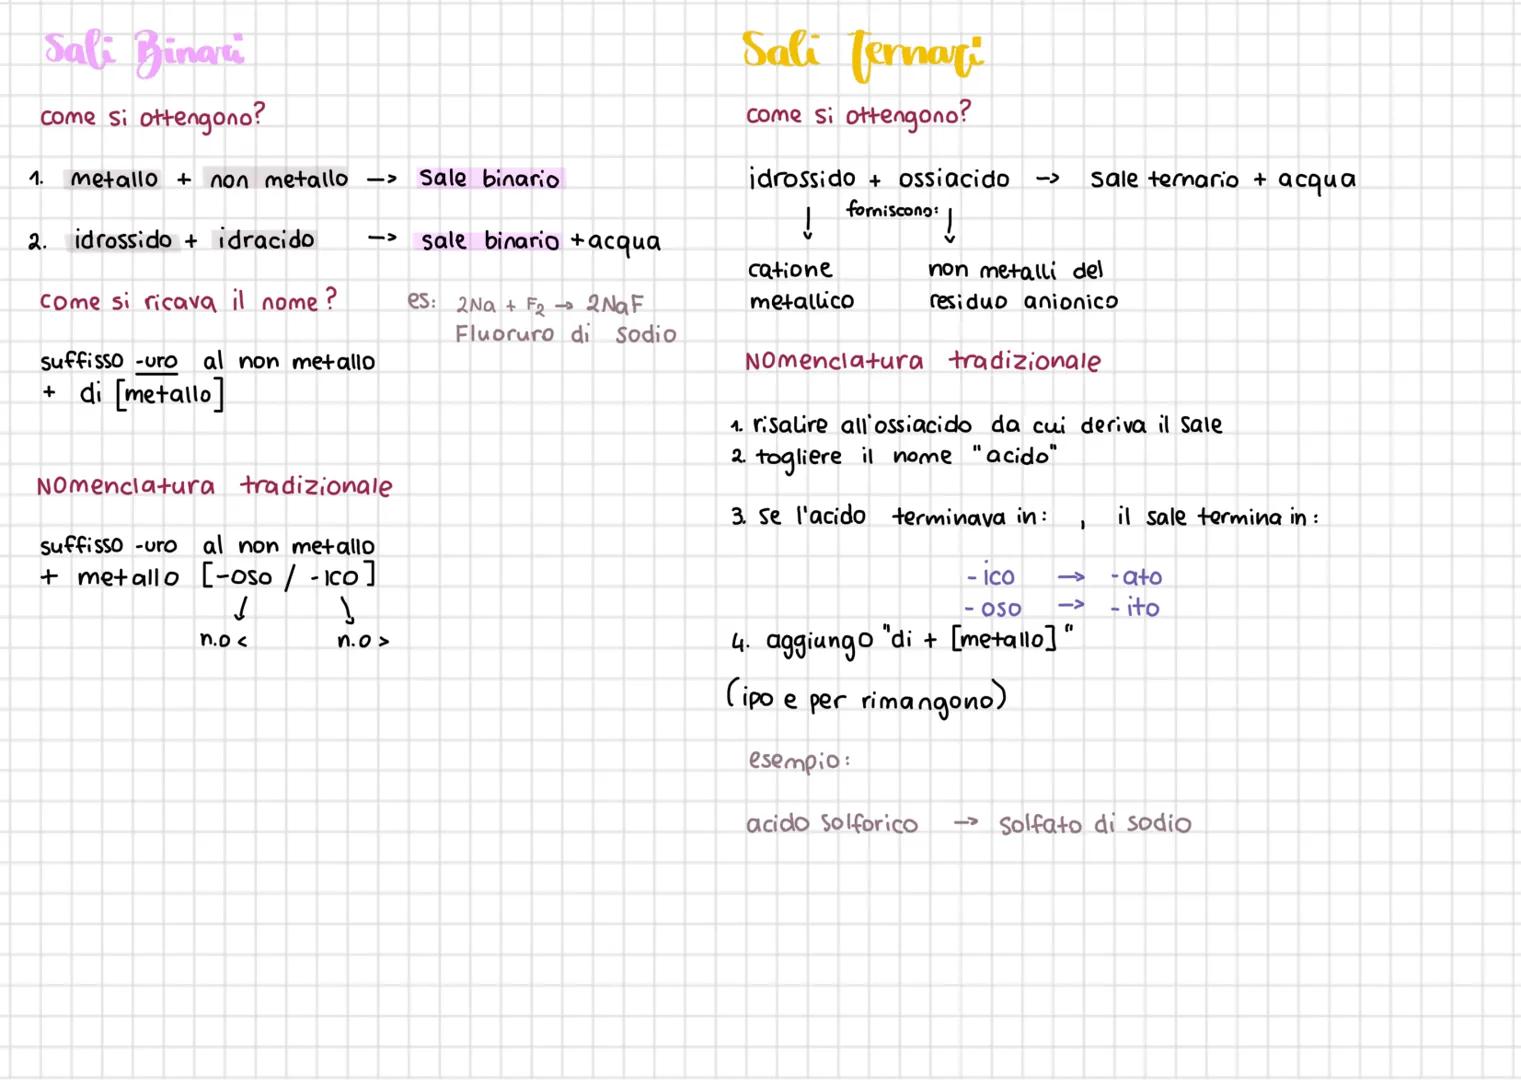 Sali Binari
come si ottengono?
1. metallo + non metallo --> sale binario
2. idrossido + idracido --> sale binario + acqua
come si ricava il nome?
es: 2Na + F₂ → 2NaF
Fluoruro di Sodio
suffisso -uro al non metallo
+ di [metallo]
Nomenclatura tradizionale
suffisso -uro al non metallo
+ metallo [-oso / -ico]
↓ ↓
n.o < n.o >
Sali ternari
come si ottengono?
idrossido + ossiacido --> sale ternario + acqua
↓ forniscono: ↓
catione non metalli del
metallico residuo anionico
Nomenclatura tradizionale
1. risalire all'ossiacido da cui deriva il sale
2. togliere il nome "acido"
3. se l'acido terminava in: , il sale termina in:
-ico → -ato
-oso --> -ito
4. aggiungo "di + [metallo]"
(ipo e per rimangono)
esempio:
acido solforico --> solfato di sodio